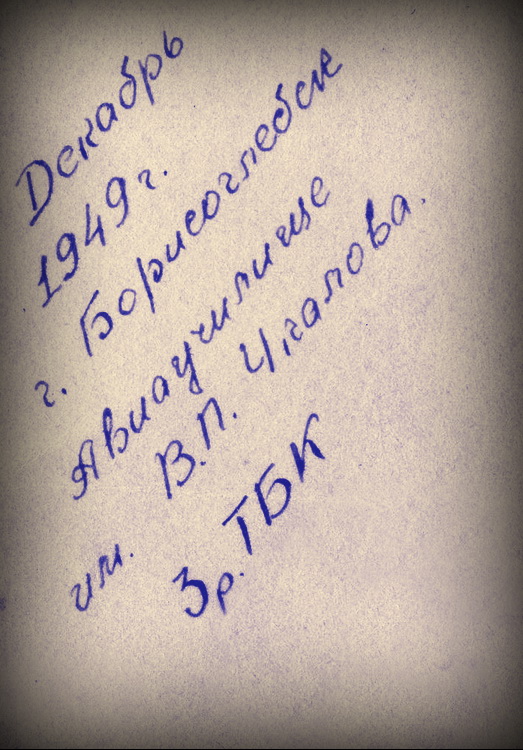 Декабрь
1949г.
г. Борисоглебск
Авиаучилище
им. В.П. Чкалова.
3р. ТБК